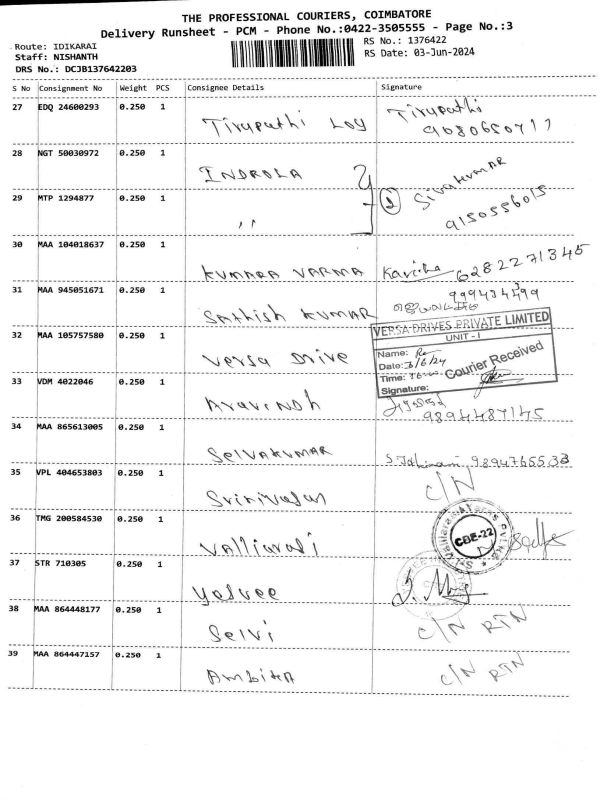 THE PROFESSIONAL COURIERS, COIMBATORE
Delivery Runsheet - PCM - Phone No.:0422-3505555 - Page No.:3
Route: IDIKARAI
RS No.: 1376422
Staff: NISHANTH
RS Date: 03-Jun-2024
DRS No.: DCJB137642203
S No Consignment No Weight PCS Consignee Details Signature
27 EDQ 24600293 0.250 1 Tirupathi Loy Tirupathi
28 NGT 50030972 0.250 1 INDROLA Sivakumar
29 MTP 1294877 0.250 1 ,, 2 9150556015
30 MAA 104018637 0.250 1 KUMARA VARMA Kavitha 6282271345
31 MAA 945051671 0.250 1 SAthish KUMAR
32 MAA 105757580 0.250 1 Versa Drive
VERSA DRIVES PRIVATE LIMITED
UNIT - I
Name:
Date: 3/6/24
Time:
Courier Received
Signature:
33 VDM 4022046 0.250 1 Aravindh 9894487145
34 MAA 865613005 0.250 1 SelVAKUMAR 9894765533
35 VPL 404653803 0.250 1 Srinivasan C/N
36 TMG 200584530 0.250 1 Valliavali
CBE-22
37 STR 710305 0.250 1 Yasvee
38 MAA 864448177 0.250 1 Selvi C/N RTN
39 MAA 864447157 0.250 1 AmbikA C/N RTN